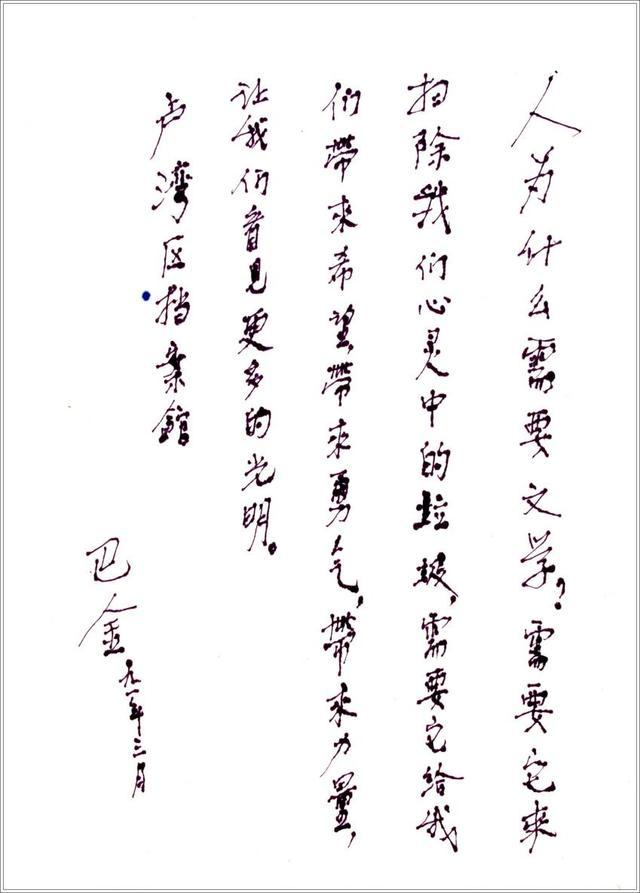 人为什么需要文学?需要它来
扫除我们心灵中的垃圾,需要它给我
们带来希望,带来勇气,带来力量,
让我们看见更多的光明。
卢湾区档案馆
巴金
九一年三月